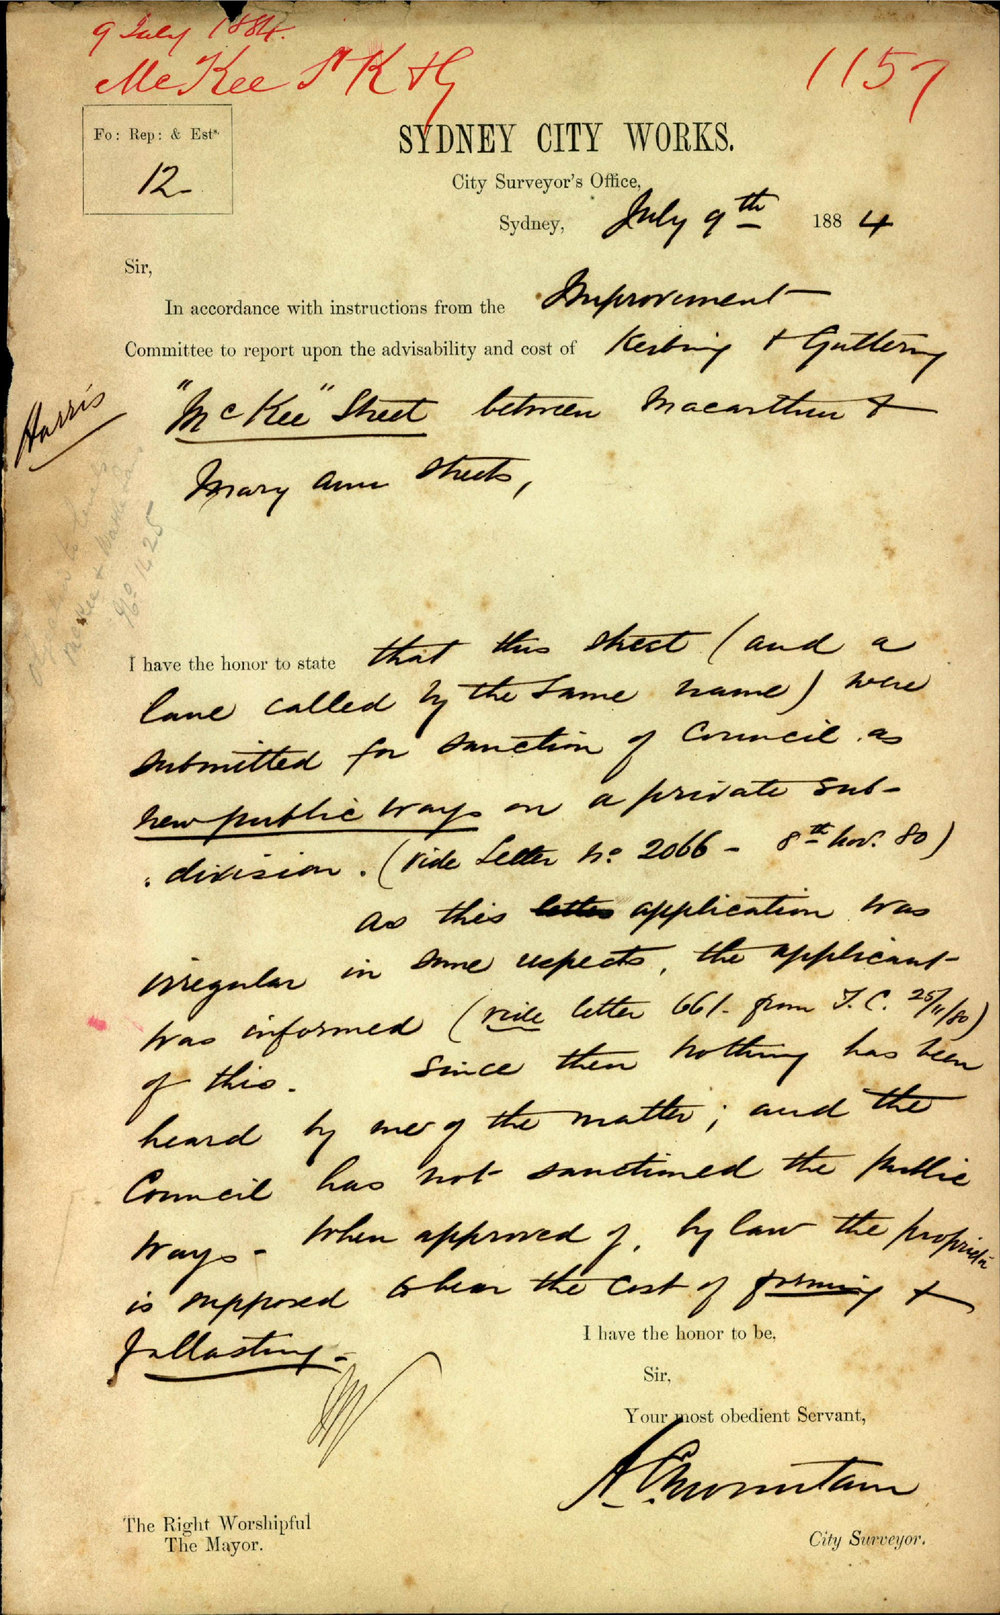 9 July 1884.
McKee St K & G
1157
Fo: Rep: & Ests.
12
SYDNEY CITY WORKS.
City Surveyor's Office,
Sydney, July 9th 1884
Sir,
In accordance with instructions from the Improvement
Committee to report upon the advisability and cost of Kerbing & Guttering
"McKee" Street between Macarthur &
Mary Ann Streets,
Harris
McKee &
No 1425
I have the honor to state that this street (and a
lane called by the same name) were
submitted for sanction of Council as
new public ways on a private sub-
division. (vide Letter No 2066 - 8th Nov. 80)
As this letter application was
irregular in some respects, the applicant
was informed (vide letter 661. from T.C. 25/11/80)
of this. Since then nothing has been
heard by me of the matter; and the
Council has not sanctioned the public
ways - When approved of, by law the
is supposed to bear the cost of forming &
ballasting.-
I have the honor to be,
Sir,
Your most obedient Servant,
A C Mountain
City Surveyor.
The Right Worshipful
The Mayor.